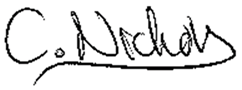 C. Nichols